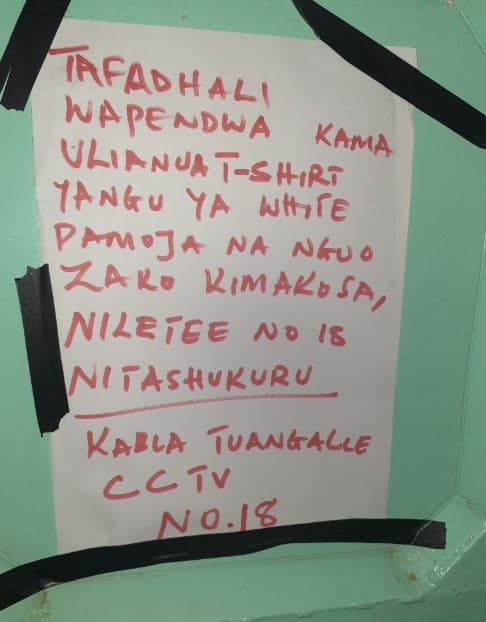 TAFADHALI
WAPENDWA KAMA
ULIANUA T-SHIRT
YANGU YA WHITE
PAMOJA NA NGUO
ZAKO KIMAKOSA,
NILETEE NO 18
NITASHUKURU
KABLA TUANGALLE
CCTV
NO.18